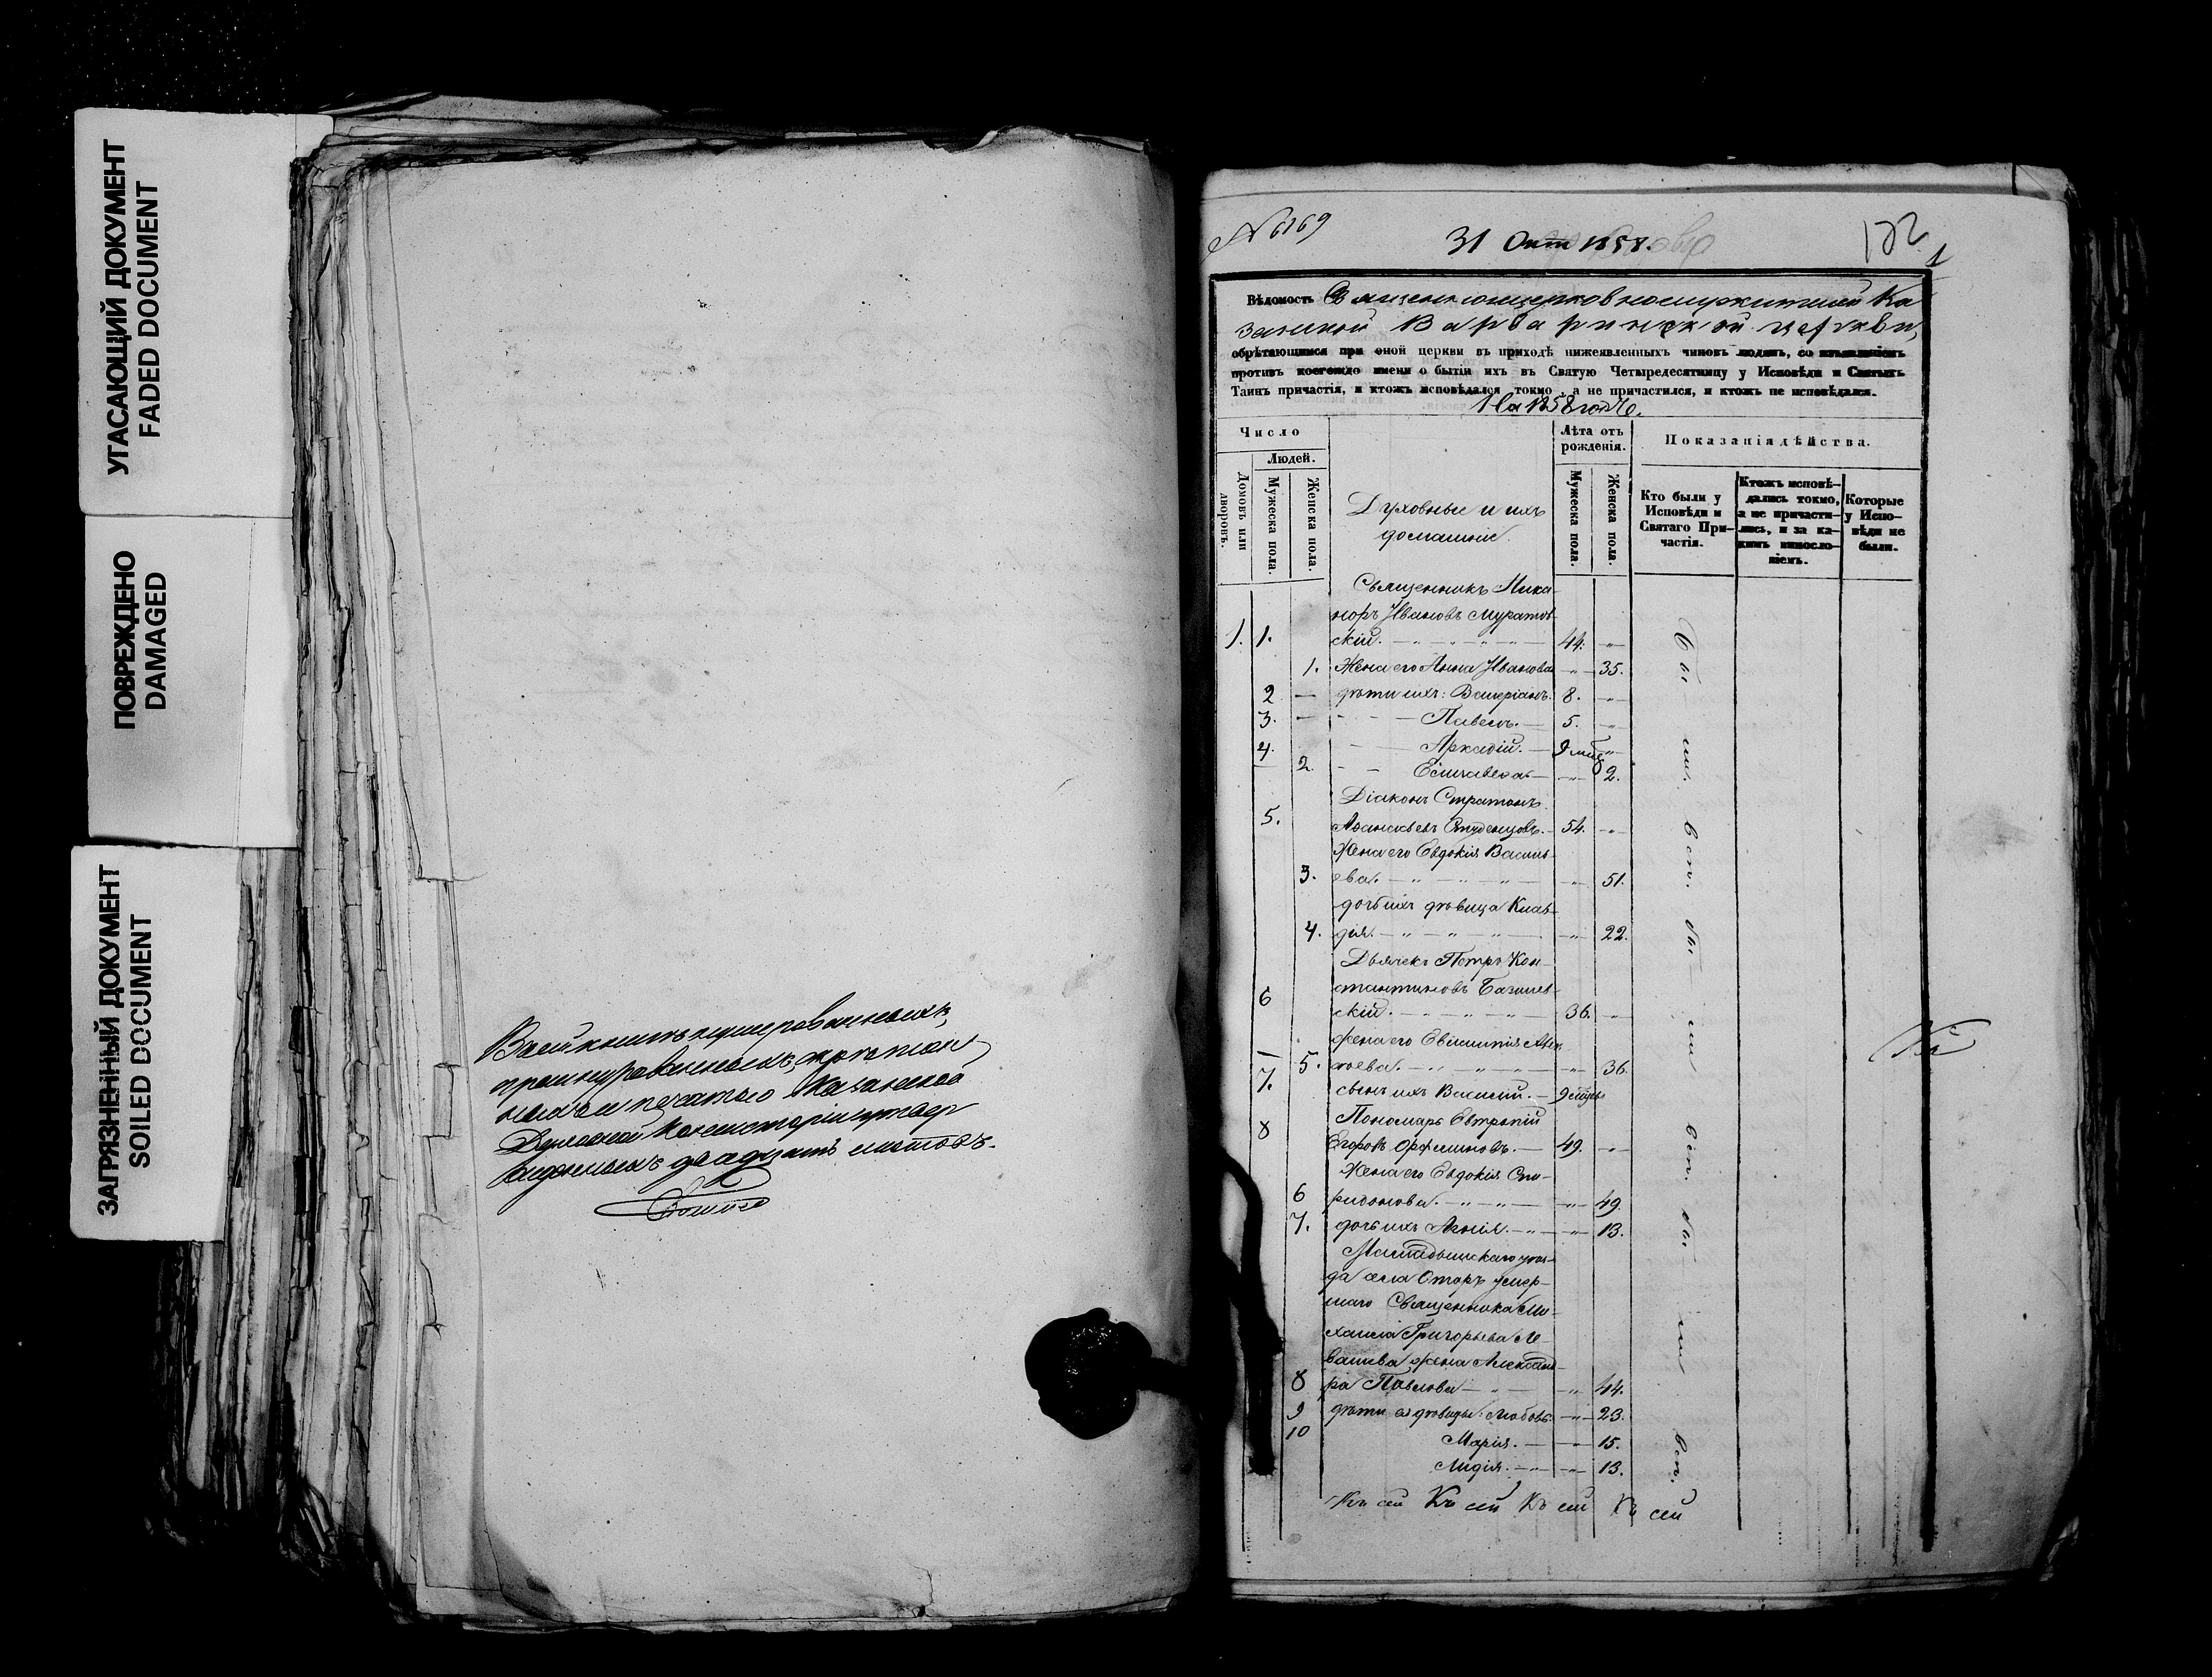 УГАСАЮЩИЙ ДОКУМЕНТ
FADED DOCUMENT
ПОВРЕЖДЕНО
DAMAGED
ЗАГРЯЗНЕННЫЙ ДОКУМЕНТ
SOILED DOCUMENT
Въ сей книгѣ нумерованныхъ,
прошнурованныхъ, скрепленныхъ
печатью Казанской
Духовной Консисторіи утвер
жденныхъ двадцать листовъ.
№ 6169
31 Окт 1858.
Вѣдомость Священноцерковнослужителей Ка
занской Варваринской церкви,
обрѣтающимся при оной церкви въ приходѣ нижеявленныхъ чиновъ людямъ, со изъявленіемъ
противъ коегождо имени о бытіи ихъ въ Святую Четыредесятницу у Исповѣди и Святыхъ
Таинъ причастія, и ктожъ исповѣдался токмо, а не причастился, и ктожъ не исповѣдался.
за 1858 годъ.
Число
Людей.
Домовъ или дворовъ.
Мужеска пола.
Женска пола.
Духовные и ихъ
домашніе.
Лѣта отъ
рожденія.
Мужеска пола.
Женска пола.
Показанія дѣйства.
Кто были у
Исповѣди и
Святаго При-
частія.
Ктожъ исповѣ-
дались токмо,
а не причасти-
лись, и за ка-
кимъ виносло-
віемъ.
Которые
у Испо-
вѣди не
были.
Священникъ Ника
норъ Ивановъ Муратов
1. 1. скій. 44.
1. Жена его Анна Иванова 35.
2 дѣти ихъ: Валеріанъ. 8.
3. Павелъ. 5.
4. Аркадій. 9 мѣс
2. Елисавета 2.
Діаконъ Стратонъ
5. Аѳанасьевъ Студенцовъ. 54.
Жена его Евдокія Василь
3. ева. 51.
дочь ихъ дѣвица Клав
4. дія. 22.
Дьячекъ Петръ Кон-
6 стантиновъ Базилев
скій. 36.
жена его Евѳимія Але
5. ксѣева. 36.
7. сынъ ихъ Василій. 9 мѣс
Пономарь Евтропій
8 Егоровъ 49.
Жена его Евдокія Спи-
6 ридонова. 49.
7. дочь ихъ Агнія. 13.
Мамадышскаго уѣз-
да села Отаръ умер-
шаго Священника Ми-
хаила Григорьева Ле-
вашева жена Александ-
8 ра Павлова 44.
9 дѣти ея дѣвицы: Любовь. 23.
10 Марія. 15.
Лидія. 13.
Бы ли. всп. бы ли всп. бы ли всп.
Къ сей Къ сей Къ сей Къ сей